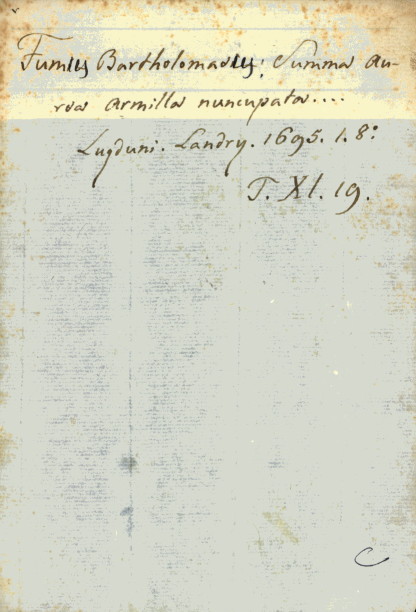 Fumus Bartholomaeus; Summa au-
rea armilla nuncupata....
Lugduni. Landry. 1695. 1. 8°
T. XI. 19.
C